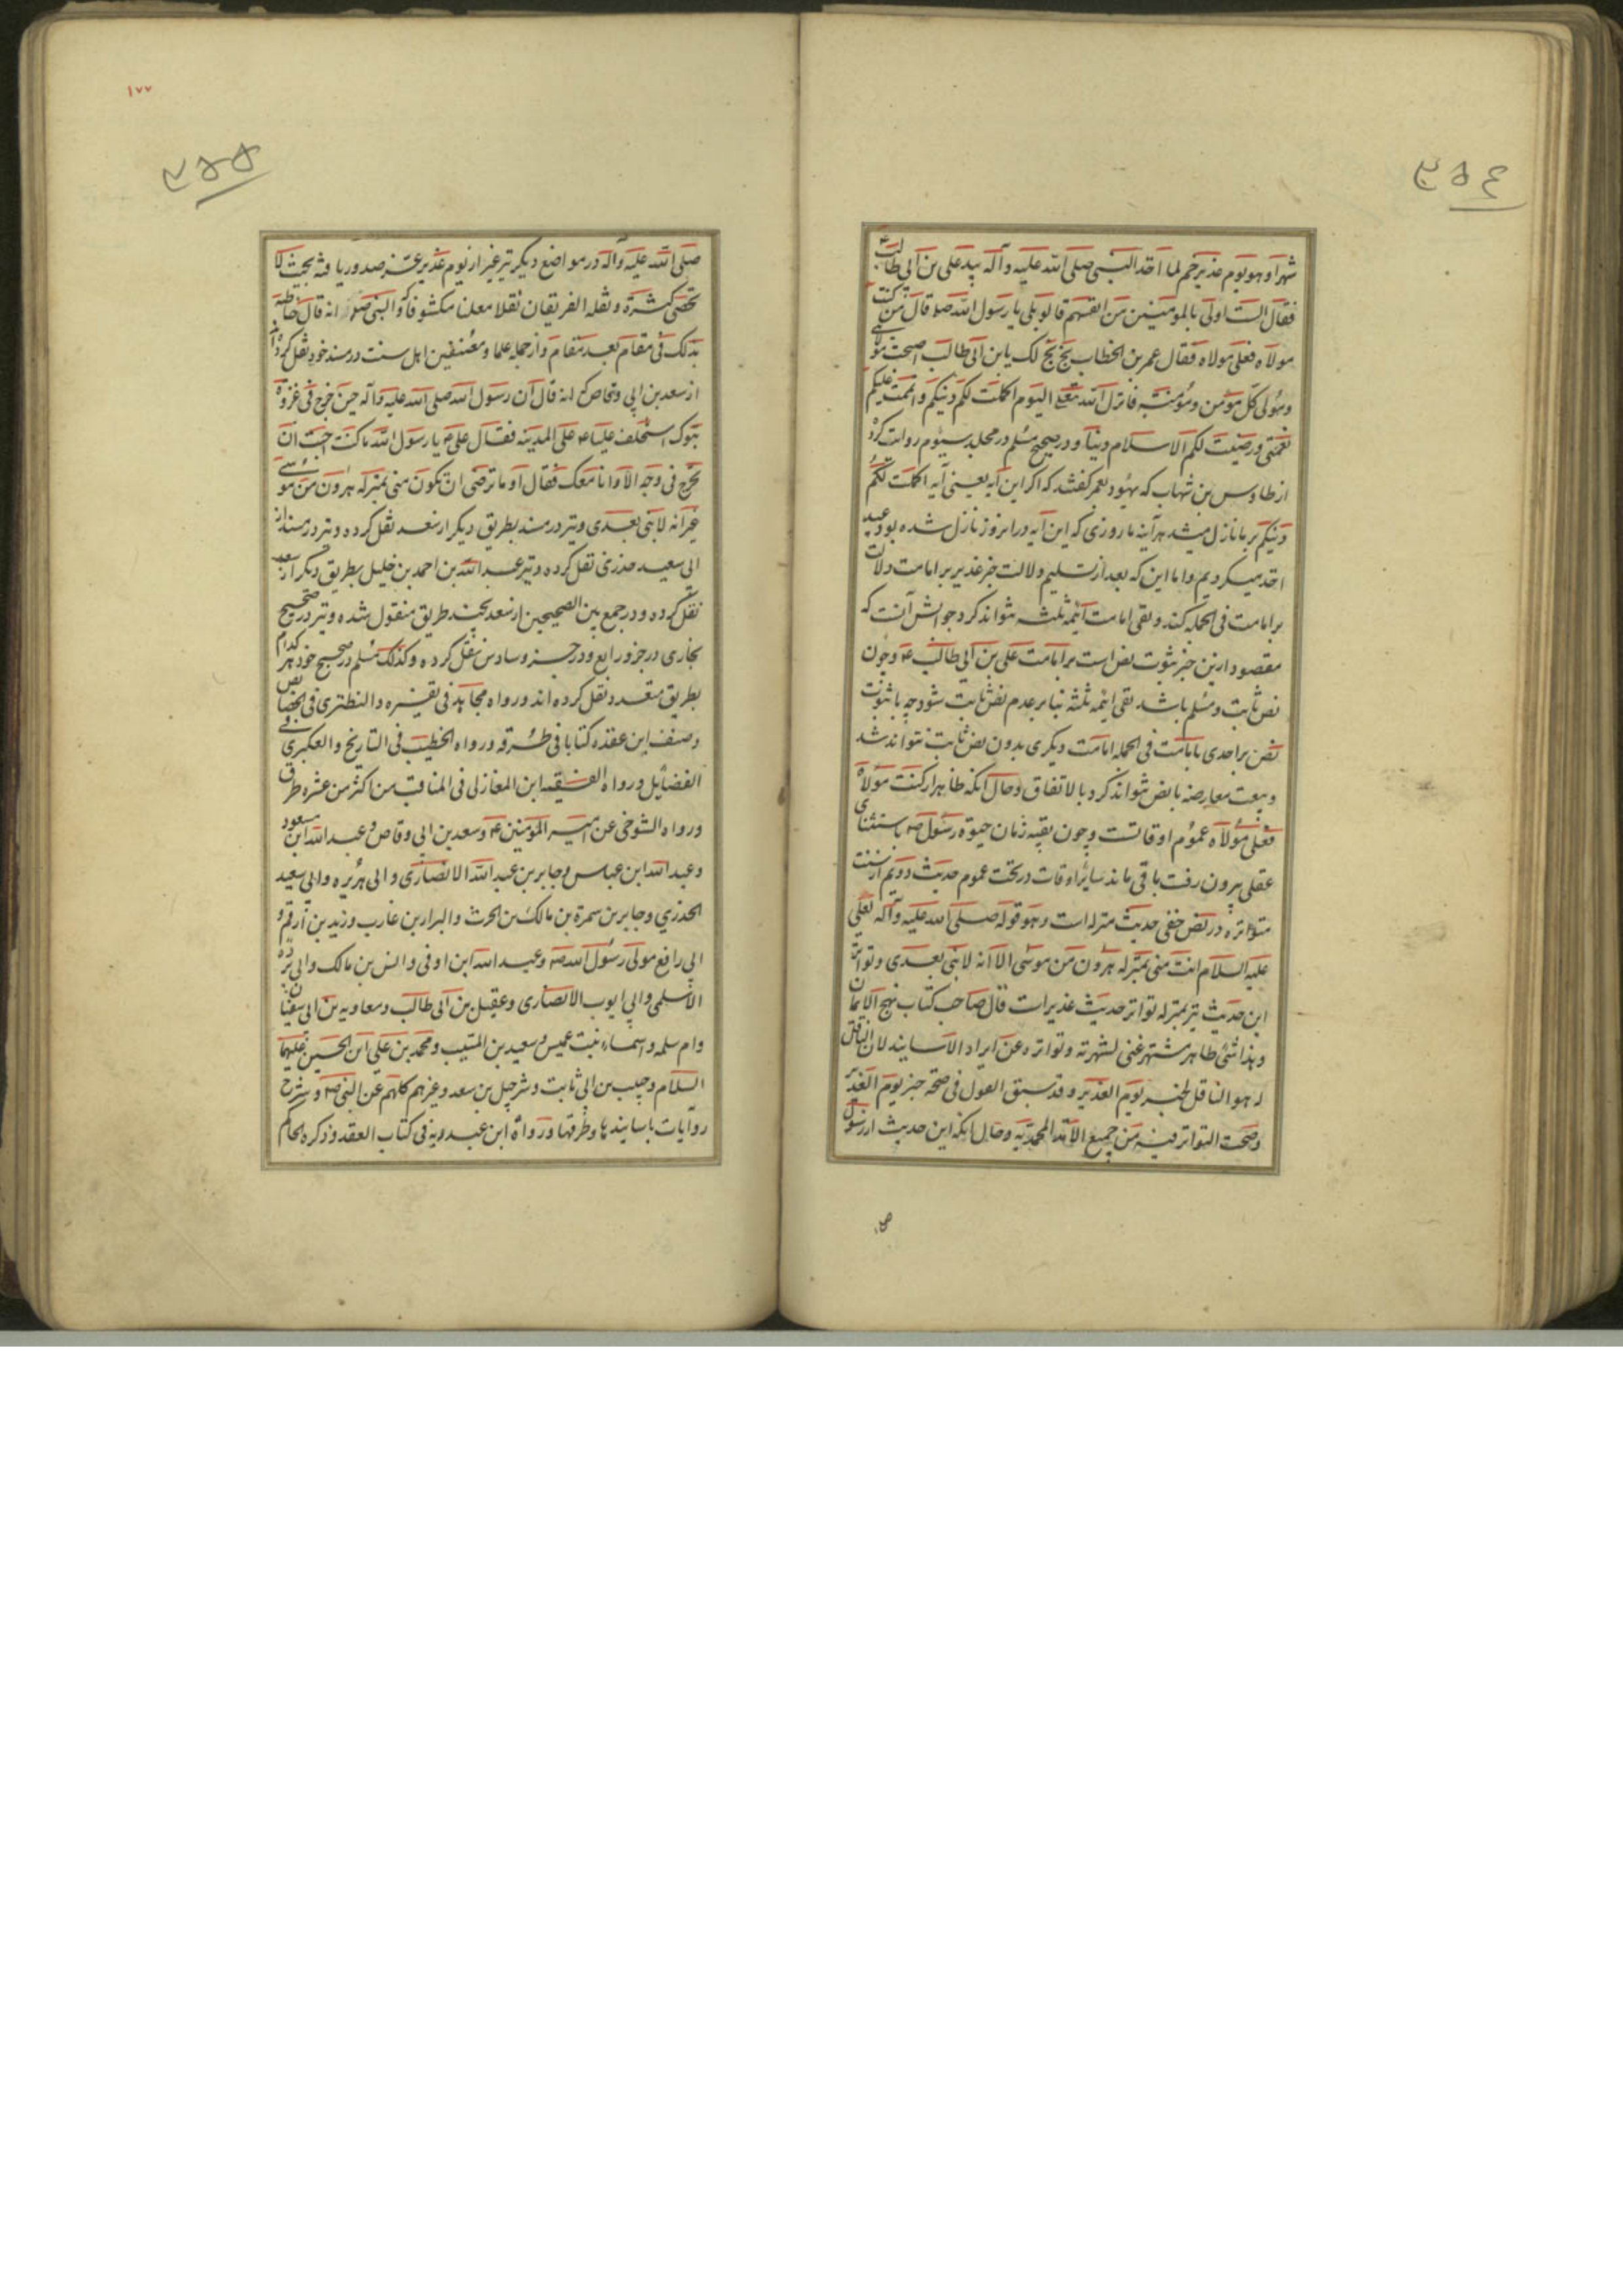 ۳۵۴
شهرا و هو یوم غدیر خم لما اخذ النبی صلی الله علیه و آله بید علی بن ابی طالب ع
فقال الست اولی بالمومنین من انفسهم قالو بلی یا رسول الله صلا قال من کنت
مولاه فعلی مولاه فقال عمر بن الخطاب بخ بخ لک یابن ابی طالب اصبحت مولای
و مولی کل مؤمن و مؤمنة فانزل الله تعالی الیوم اکملت لکم دینکم و اتممت علیکم
نعمتی و رضیت لکم الاسلام دینا و در صحیح مسلم در مجلد سیوم روایت کرده
از طاوس بن شهاب که یهود بعمر گفتند که اگر این آیه یعنی آیه اکملت لکم
دینکم بر ما نازل میشد هر آینه ما روزی که این آیه در انروز نازل شده بود عید
اخذ میکردیم و اما این که بعد از تسلیم دلالت خبر غدیر بر امامت دلالت
بر امامت فی الجمله کند و نفی امامت ائمه ثلثه نتواند کرد جوابش آنست که
مقصود ازین خبر ثبوت نص است بر امامت علی بن ابی طالب ع و چون
نص ثابت و مسلم باشد نفی ائمه ثلثه بنا بر عدم نص ثابت شود چه با ثبوت
نص بر احدی بامامت فی الجمله امامت دیگری بدون نص ثابت نتواند شد
و بیعت معارضه با نص نتواند کرد بالاتفاق و حال آنکه ظاهر از کنت مولاه
فعلی مولاه عموم اوقاتست و چون بقیه زمان حیوة رسول ص باستثنای
عقلی بیرون رفت باقی ماند سایر اوقات در تحت عموم حدیث دویم از سنت
متواتره در نص خفی حدیث منزله است و هو قوله صلی الله علیه و آله لعلی
علیه السلام انت منی بمنزله هرون من موسی الا انه لا نبی بعدی و تواتر
این حدیث نیز بمنزله تواتر حدیث غدیر است قال صاحب کتاب نهج الایمان
و هذا شئ ظاهر مشتهر غنی لشهرته و تواتره عن ایراد الاسانید لان الناقل
له هو الناقل لخبر یوم الغدیر و قد سبق القول فی صحة خبر یوم الغدیر
و صحت التواتر فیه من جمیع الامة المحمدیه و حال آنکه این حدیث از رسول
۱۷۷
۳۵۵
صلی الله علیه و آله در مواضع دیگر نیز غیر از یوم غدیر عز صدور یافته بحیث لا
تحصی کثرة و نقله الفریقان نقلا معلنا مکشوفا و النبی صلا انه قال خاطبه
بذلک فی مقام بعد مقام و از جمله علما و مصنفین اهل سنت در مسند خود نقل کرده
از سعد بن ابی وقاص انه قال ان رسول الله صلی الله علیه و آله حین خرج فی غزوة
تبوک استخلف علیا ع علی المدینه فقال علی ع یا رسول الله ما کنت احب ان
تخرج فی وجه الا و انا معک فقال او ما ترضی ان تکون منی بمنزله هرون من موسی
غیر انه لا نبی بعدی و نیز در مسند بطریق دیگر از سعد نقل کرده و نیز در مسند از
ابی سعید خدری نقل کرده و نیز عبد الله بن احمد بن خلیل بطریق دیگر از سعد
نقل کرده و در جمع بین الصحیحین از سعد بچند طریق منقول شده و نیز در صحیح
بخاری در جزو رابع و در جزو سادس نقل کرده و کذلک مسلم در صحیح خود هر کدام
بطریق متعدد نقل کرده اند و رواه مجاهد فی تفسیره و النطنزی فی الخصایص
و صنف ابن عقده کتابا فی طرقه و رواه الخطیب فی التاریخ و العکبری فی
الفضایل و رواه الفقیه ابن المغازلی فی المناقب من اکثر من عشره طرق
و رواه التنوخی عن امیر المؤمنین ع و سعد بن ابی وقاص و عبد الله ابن مسعود
و عبد الله ابن عباس و جابر بن عبد الله الانصاری و ابی هریره و ابی سعید
الخدری و جابر بن سمرة بن مالک بن الحرث و البرا بن عازب و زید بن ارقم و
ابی رافع مولی رسول الله ص و عبد الله ابن اوفی و انس بن مالک و ابی برده
الاسلمی و ابی ایوب الانصاری و عقیل بن ابی طالب و معاویه بن ابی سفیان
و ام سلمه و اسماء بنت عمیس و سعید بن المسیب و محمد بن علی ابن الحسین علیهما
السلام و حبیب بن ابی ثابت و شرحبیل بن سعد و غیرهم کلهم عن النبی ص و شرح
روایات باسانیدها و طرقها و رواه ابن عبد ربه فی کتاب العقد و ذکره الحاکم